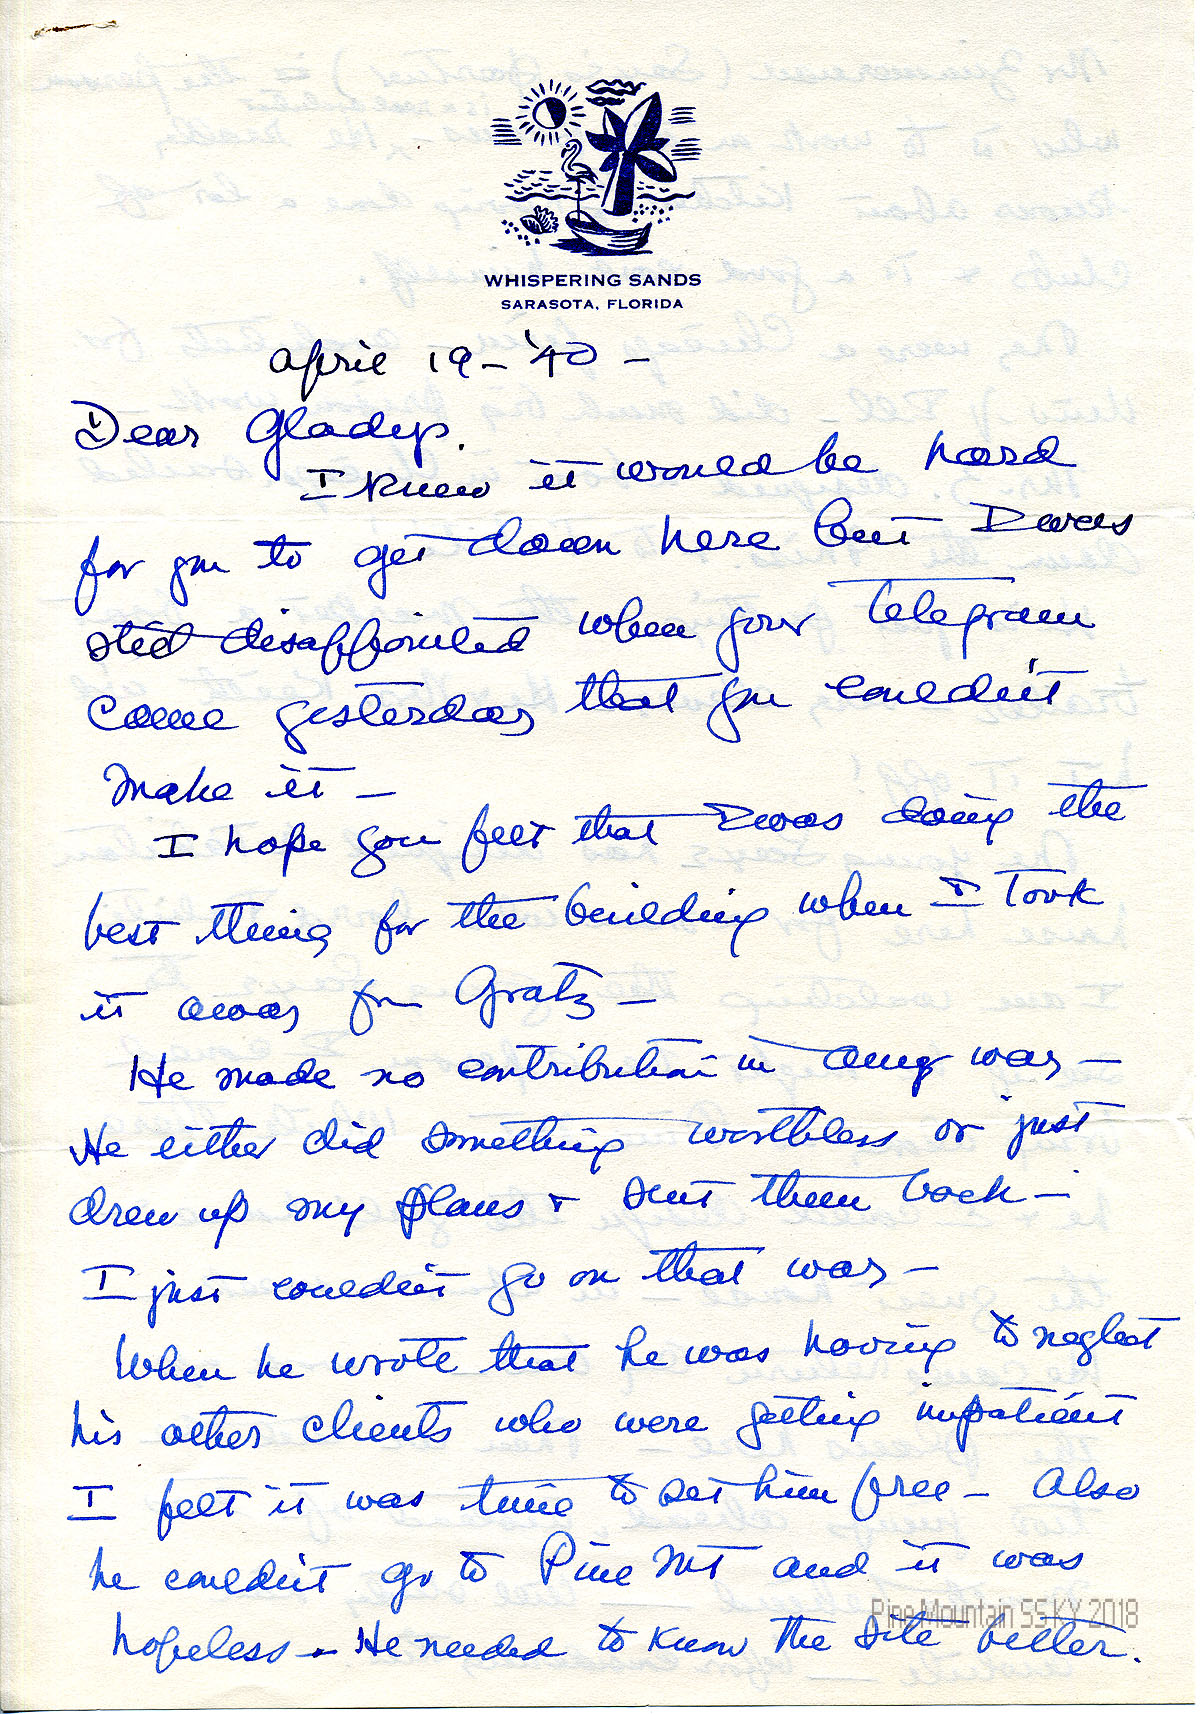 WHISPERING SANDS
SARASOTA, FLORIDA
April 19 - '40 -
Dear Gladys.
I knew it would be hard
for you to get down here but I was
still disappointed when your telegram
came yesterday that you couldn't
make it -
I hope you felt that I was doing the
best thing for the building when I took
it away from Gratz -
He made no contribution in any way -
He either did something worthless or just
drew up my plans + sent them back -
I just couldn't go on that way -
When he wrote that he was having to neglect
his other clients who were getting impatient
I felt it was time to set him free - Also
he couldn't go to Pine Mt and it was
hopeless - He needed to know the site better.
Pine Mountain SS KY 2018